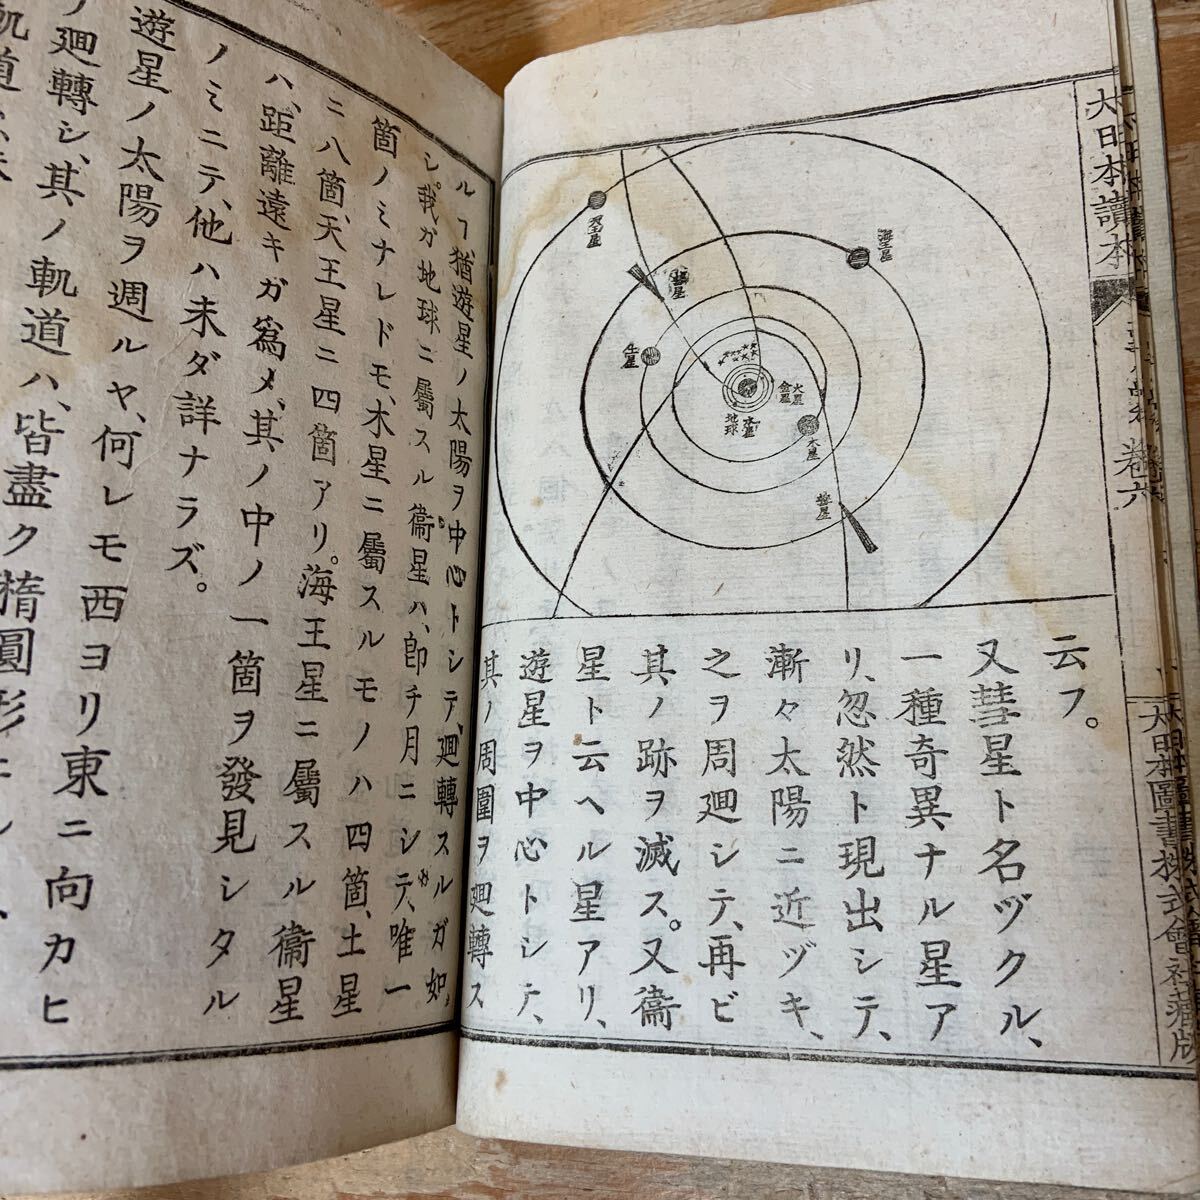 大日本讀本
卷六
大日本圖書株式會社藏版
天王星
海王星
彗星
土星
火星
金星
水星
地球
木星
彗星
云フ。
又彗星ト名ヅクル、
一種奇異ナル星ア
リ、忽然ト現出シテ、
漸々太陽ニ近ヅキ、
之ヲ周廻シテ、再ビ
其ノ跡ヲ滅ス。又衞
星ト云ヘル星アリ、
遊星ヲ中心トシテ、
其ノ周圍ヲ廻轉ス
ルヿ猶遊星ノ太陽ヲ中心トシテ、廻轉スルガ如
シ。我ガ地球ニ屬スル衞星ハ、卽チ月ニシテ、唯一
箇ノミナレドモ、木星ニ屬スルモノハ四箇、土星
ニ八箇、天王星ニ四箇アリ。海王星ニ屬スル衞星
ハ、距離遠キガ爲メ、其ノ中ノ一箇ヲ發見シタル
ノミニテ、他ハ未ダ詳ナラズ。
遊星ノ太陽ヲ週ルヤ、何レモ西ヨリ東ニ向カヒ
廻轉シ、其ノ軌道ハ、皆盡ク楕圓形